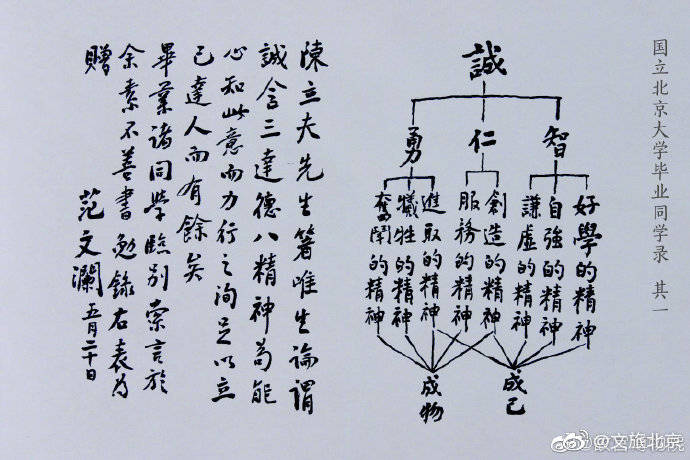 国立北京大学毕业同学录 其一
誠
智
仁
勇
好學的精神
自強的精神
謙虛的精神
創造的精神
服務的精神
進取的精神
犧牲的精神
奮鬥的精神
成己
成物
陳立夫先生箸唯生論謂
誠含三達德八精神苟能
心知此意而力行之洵足以立
己達人而有餘矣
畢業諸同學臨別索言於
余素不善書勉錄右表為
贈
范文瀾 五月二十日
@文旅北京